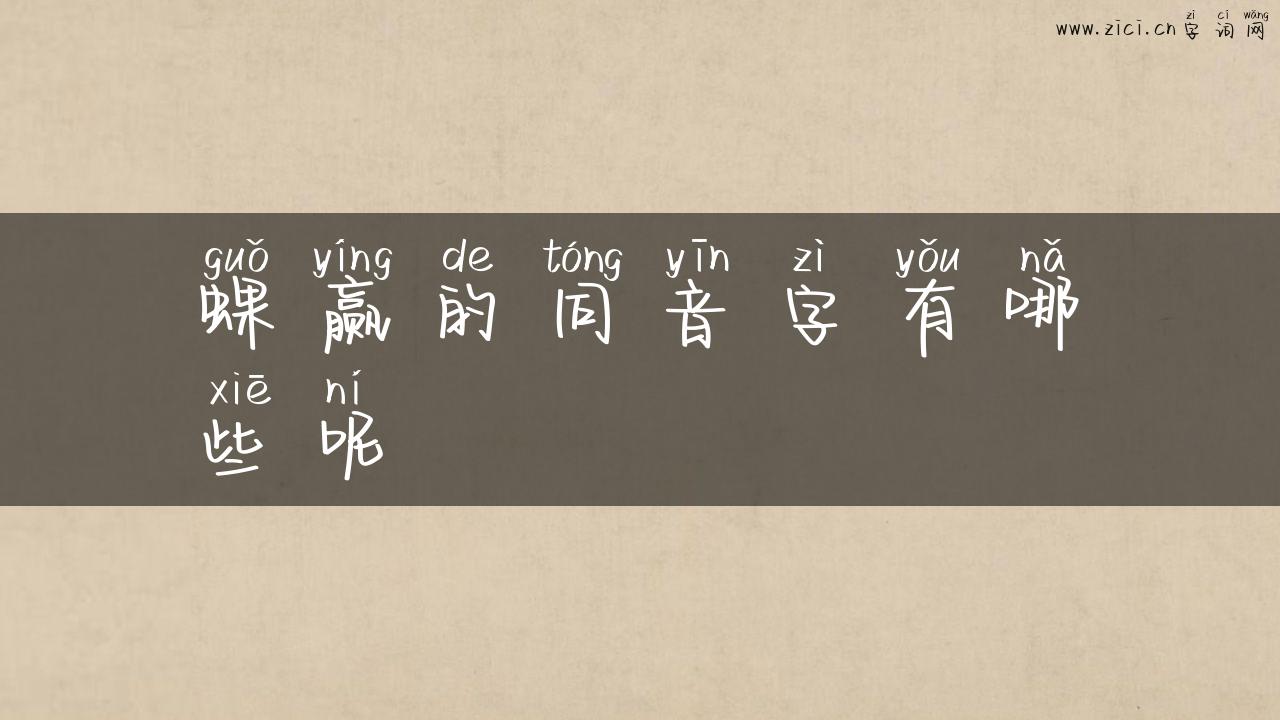 zì cí wǎng
www.zici.cn 字词网
guǒ yíng de tóng yīn zì yǒu nǎ
蜾赢的同音字有哪
xiē ní
些呢